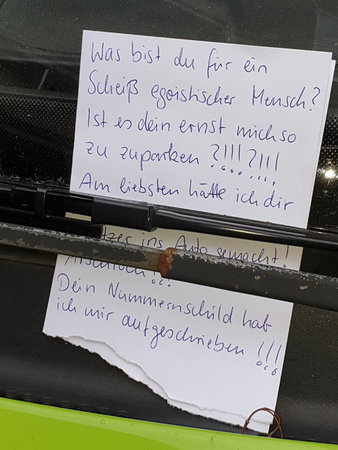 Was bist du für ein
Scheiß egoistischer Mensch?
Ist es dein ernst mich so
zu zuparken ?!!!?!!!
Am liebsten hätte ich dir
ins Auto gemacht!
Arschloch!!
Dein Nummernschild hab
ich mir aufgeschrieben!!!